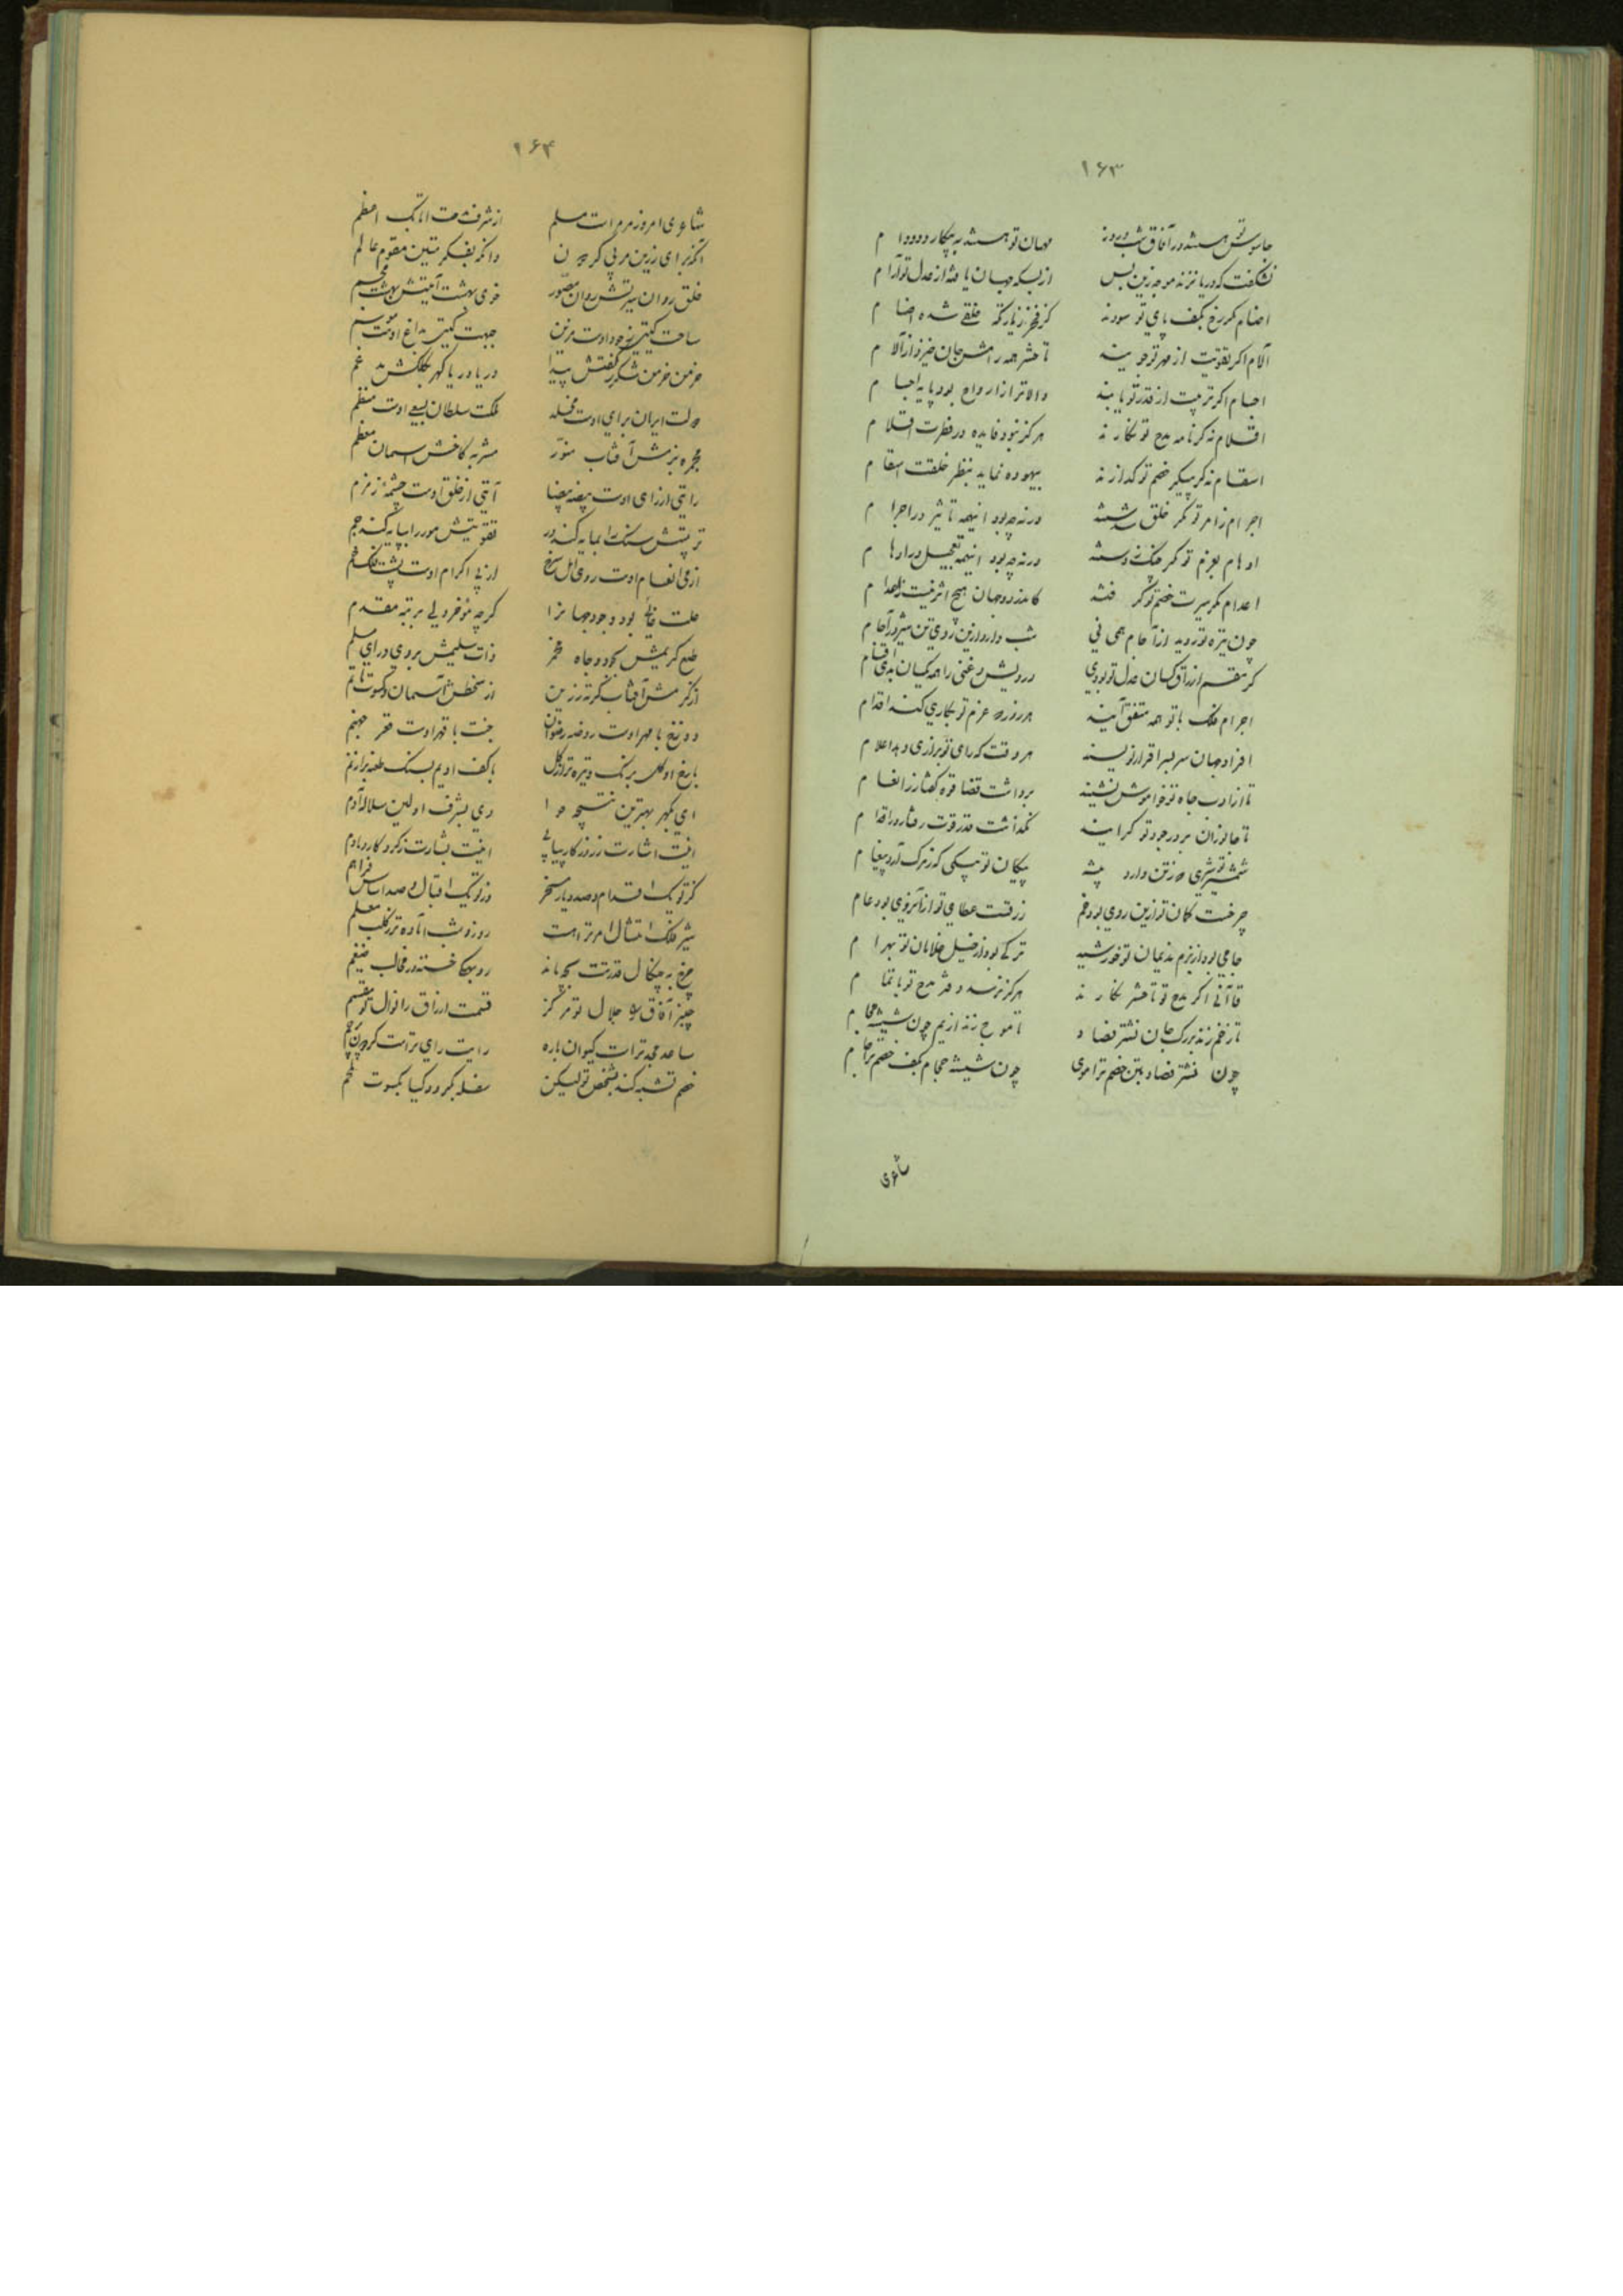 ۱۶۳
جاسوس تو همیشه در آفاق شب و روز مهمان تو همیشه به پیکار دد و دام
نشکفت که دریا نزند موجه زین پس از بسکه جهان یافته از عدل تو آرام
اصنام مگر رخ بکف پای تو سودند کز فخر زیارتگه خلقی شده اصنام
آلام اگر تقویت از مهر تو جویند تا حشر همه رامش جان خیزد از آلام
اجسام اگر تربیت از قدر تو یابند والاتر از ارواح بود پایه اجسام
اقلام نه گر نامه مدح تو نگارند هرگز نبود فایده در فطرت اقلام
اسقام نه گر پیکر خصم تو گدازند بیهوده نماید بنظر خلقت اسقام
اجرام ز امر تو مگر خلق شدستند ورنه چه بود اینهمه تاثیر در اجرام
اوهام بعزم تو مگر چنگ زدستند ورنه چه بود اینهمه تعجیل در اوهام
اعدام مگر سیرت خصم تو گرفتند کاندر دو جهان هیچ اثر نیست ز اعدام
چون نیزه تو روید از آجام همی نی شب دارد ازین روی تن شیر در آجام
گر مقسم ارزاق کسان عدل تو بودی درویش و غنی را همه یکسان بدی اقسام
اجرام فلک با تو همه متفق آیند هر روز که عزم تو بکاری کند اقدام
افراد جهان سر بسر اقرار نویسند هر وقت که رای تو برازی دهد اعلام
تا از ادب جاه تو خاموش نشینند برداشت قضا قوه گفتار ز انعام
تا جانوران بر در جود تو گرایند نگذاشت قدر قوت رفتار در اقدام
شمشیر تو شیری که ز تن دارد بیشه پیکان تو پیکی که ز مرگ آرد پیغام
چرخیست کمان تو ازین روی بود خم رزقست عطای تو از آنروی بود عام
جامی بود از بزم ندیمان تو خورشید ترکی بود از خیل غلامان تو بهرام
قاآنی اگر مدح تو تا حشر نگارند هرگز نرسد دفتر مدح تو باتمام
تا زخم زند بر رگ جان نشتر فصاد تا موج زند از یم خون شیشه حجام
چون نشتر فصاد بتن خصم ترا موی چون شیشه حجام بکف خصم ترا جام
شاعری
۱۶۴
شاعری امروز مر مراست مسلم از شرف مدحت اتابک اعظم
آنکه برای رزین مربی گردون وانکه بفکر متین مقوم عالم
خلق روان سیرتش روان مصور خوی بهشت آیتش بهشت مجسم
ساحت گیتی بجود اوست مزین جبهت گیتی بداغ اوست موسم
خرمن خرمن شکر ز گفتش پیدا دریا دریا گهر بکلکش مدغم
دولت ایران برای اوست مخلد ملکت سلطان بسعی اوست منظم
مجمره بزمش آفتاب منور مشربه کاخش آسمان معظم
رایتی از رای اوست بیضه بیضا آیتی از خلق اوست چشمه زمزم
تربیتش سنگ را بمایه کند در تقویتش مور را بپایه کند جم
از می انعام اوست روی امل سرخ از پی اکرام اوست پشت فلک خم
علت غائی بود وجود جهانرا گرچه مؤخر ولی برتبه مقدم
طبع کریمش بجود و جاه مخمر ذات سلیمش بروی و رای مسلم
از کرمش آفتاب کرته زرین از سخطش آسمان و کسوت ماتم
دوزخ با مهر اوست روضه رضوان جنت با قهر اوست قعر جهنم
با رخ او گل برنگ و تیره‌تر از گل با کف او یم بسنگ طعنه بر از نم
ای بگهر بهترین نتیجه حوا وی بشرف اولین سلاله آدم
اینت اشارت ز روزگار پیاپی اینت بشارت ز کردگار دمادم
کز تو یک اقدام و صد دیار مسخر وز تو یک اقبال و صد اساس فراهم
شیر فلک امتثال امر تراست روز و شب آماده‌تر ز کلب معلم
چرخ به چنگال قدرتت بچه ماند روبهکی خسته در مخالب ضیغم
چنبر آفاق را جلال تو مرکز قسمت ارزاق را نوال تو مقسم
ساعد مجد تراست کیوان یاره رایت رای تراست گردون پرچم
خصم تشبه کند بشخص تو لیکن سفله نگردد کیا بکسوت ملحم